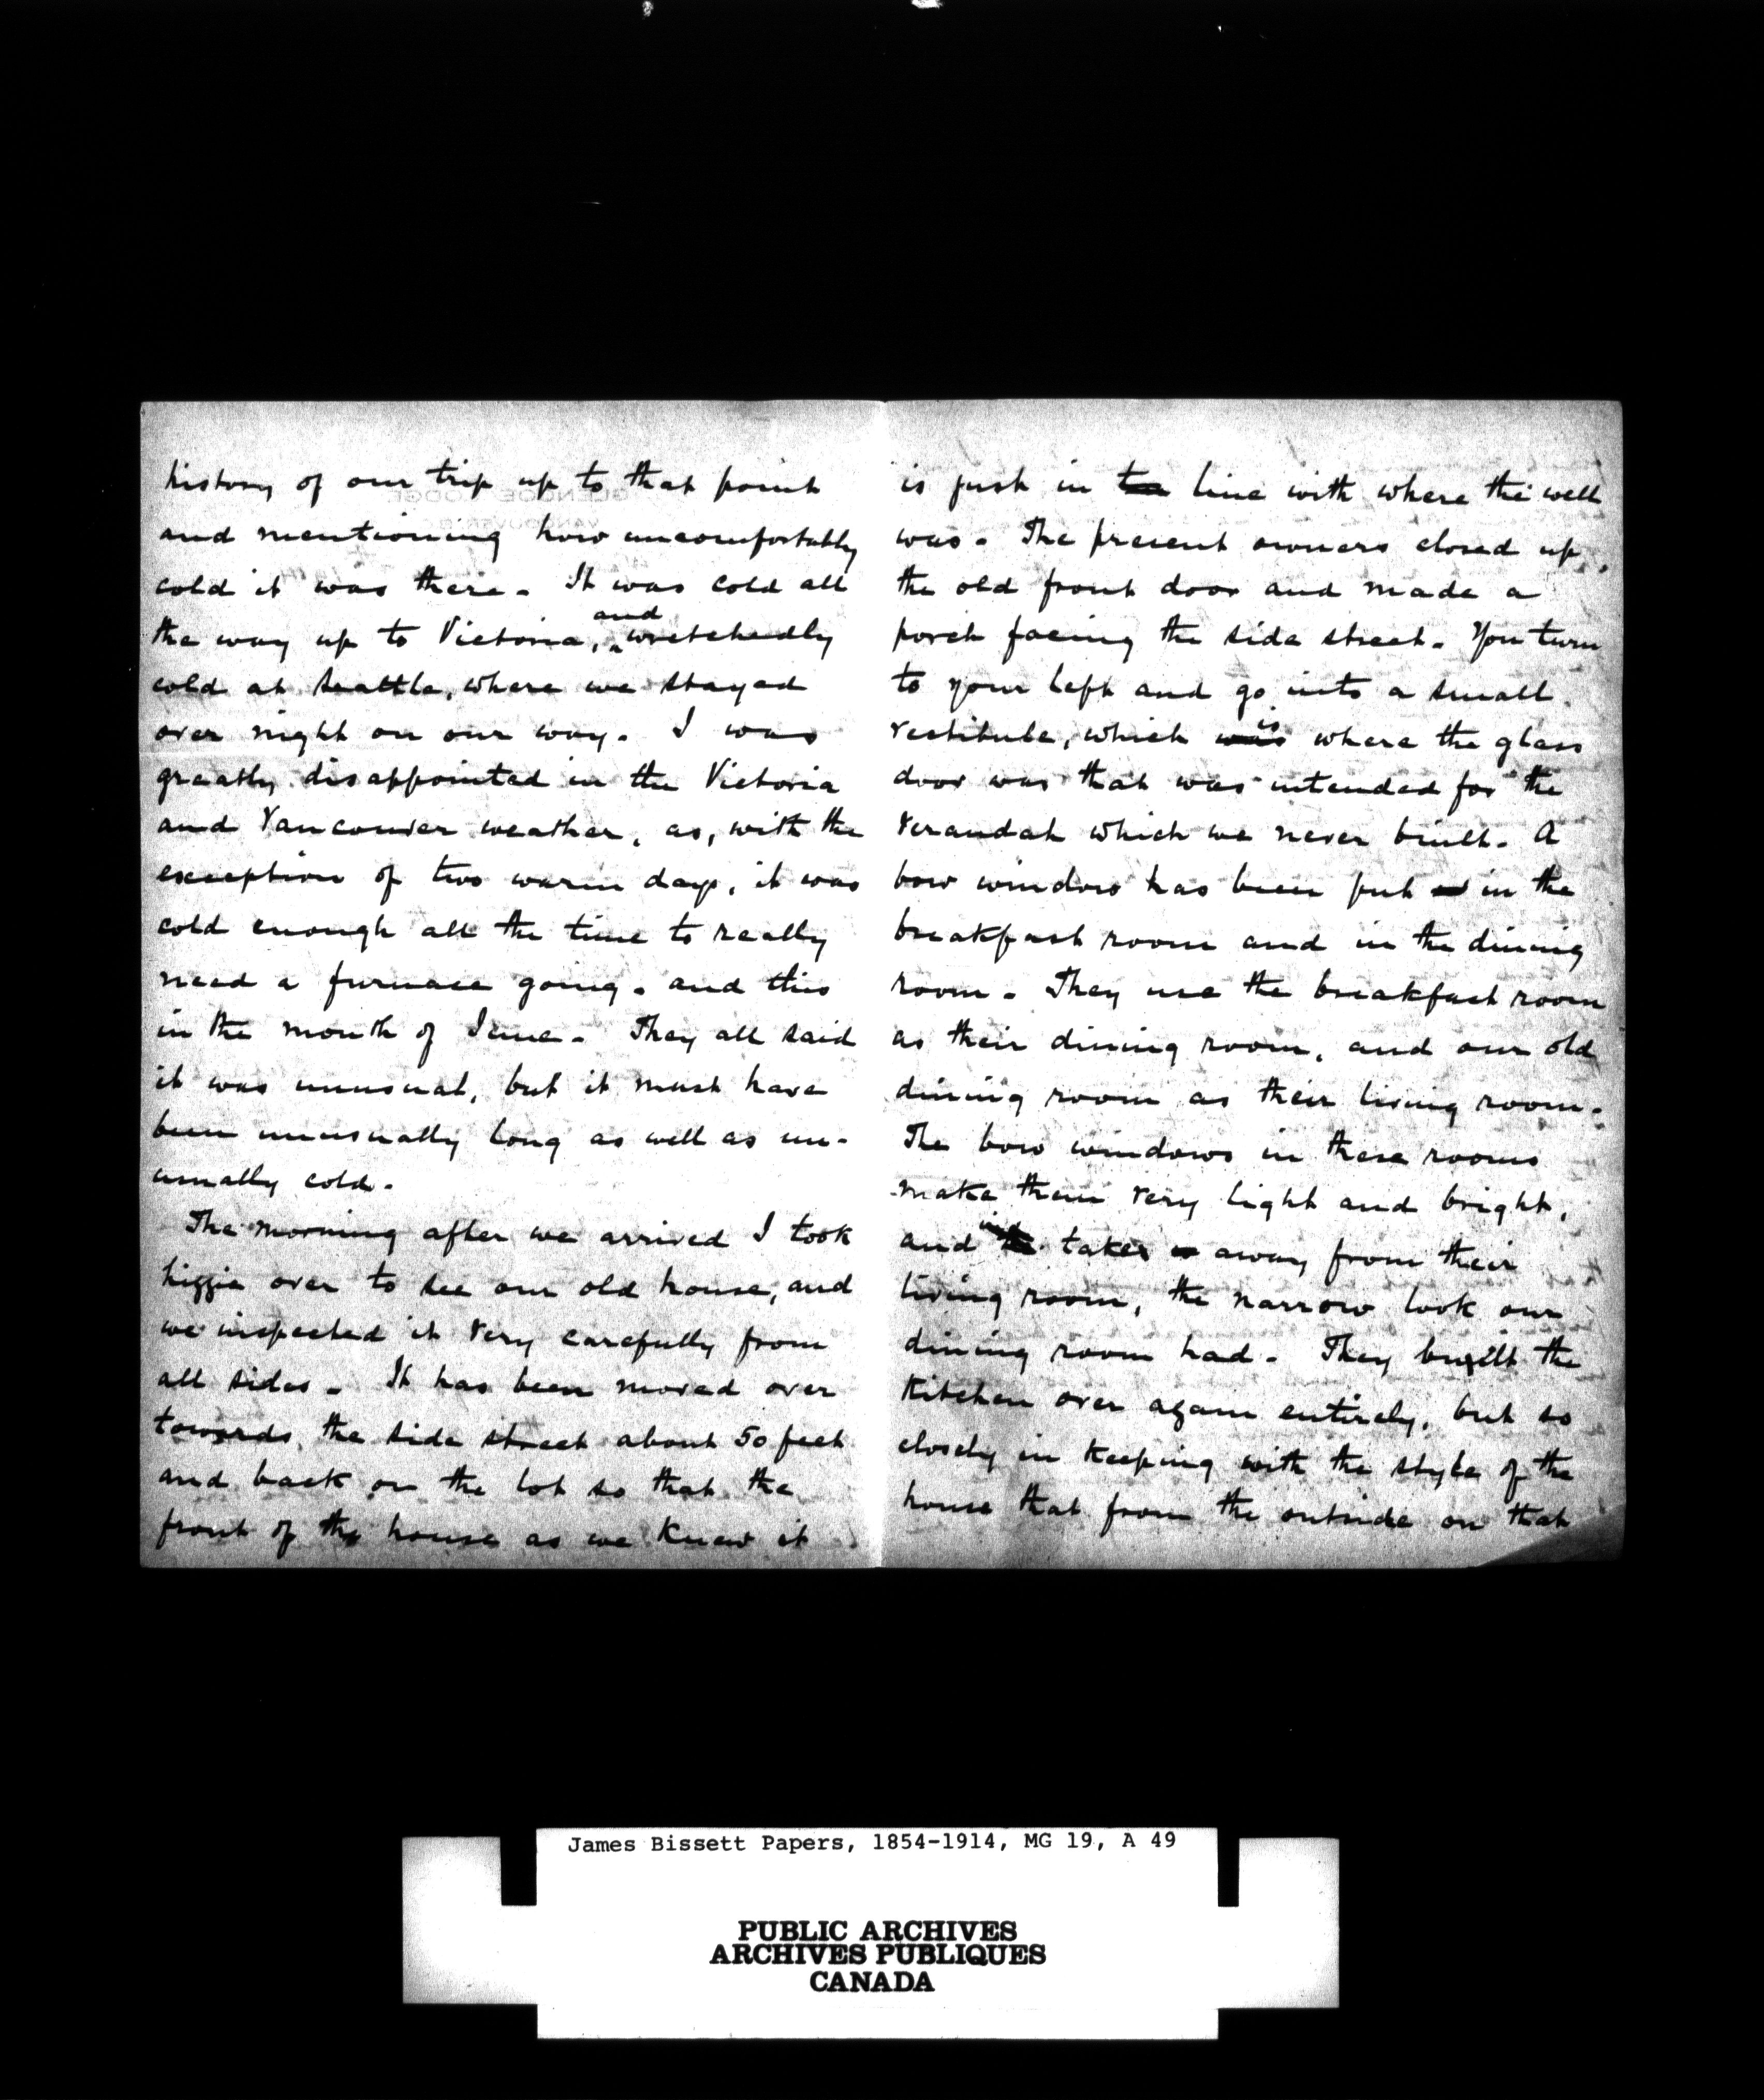 history of our trip up to that point
and mentioning how uncomfortably
cold it was there. It was cold all
the way up to Victoria, and wretchedly
cold at Seattle, where we stayed
over night on our way. I was
greatly disappointed in the Victoria
and Vancouver weather, as, with the
exception of two warm days, it was
cold enough all the time to really
need a furnace going. and this
in the month of June. They all said
it was unusual, but it must have
been unusually long as well as un-
usually cold.
The morning after we arrived I took
Lizzie over to see our old house, and
we inspected it very carefully from
all sides. It has been moved over
towards the side street about 50 feet
and back on the lot so that the
front of the house as we knew it
is just in line with where the well
was. The present owners closed up
the old front door and made a
porch facing the side street. You turn
to your left and go into a small
vestibule, which was is where the glass
door was that was intended for the
verandah which we never built. A
bow window has been put in the
breakfast room and in the dining
room. They use the breakfast room
as their dining room, and our old
dining room as their living room.
The bow windows in these rooms
make them very light and bright,
and takes away from their
living room, the narrow look our
dining room had. They built the
kitchen over again entirely, but so
closely in keeping with the style of the
house that from the outside on that
James Bissett Papers, 1854-1914, MG 19, A 49
PUBLIC ARCHIVES
ARCHIVES PUBLIQUES
CANADA